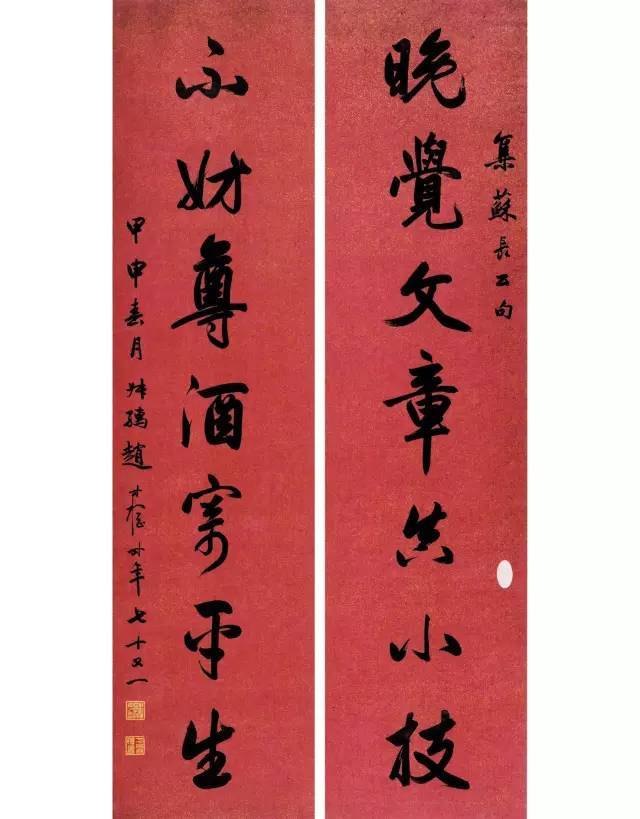 集蘇長公句
晚覺文章真小技
不妨尊酒寄平生
甲申春月叔孺趙時棡時年七十又一